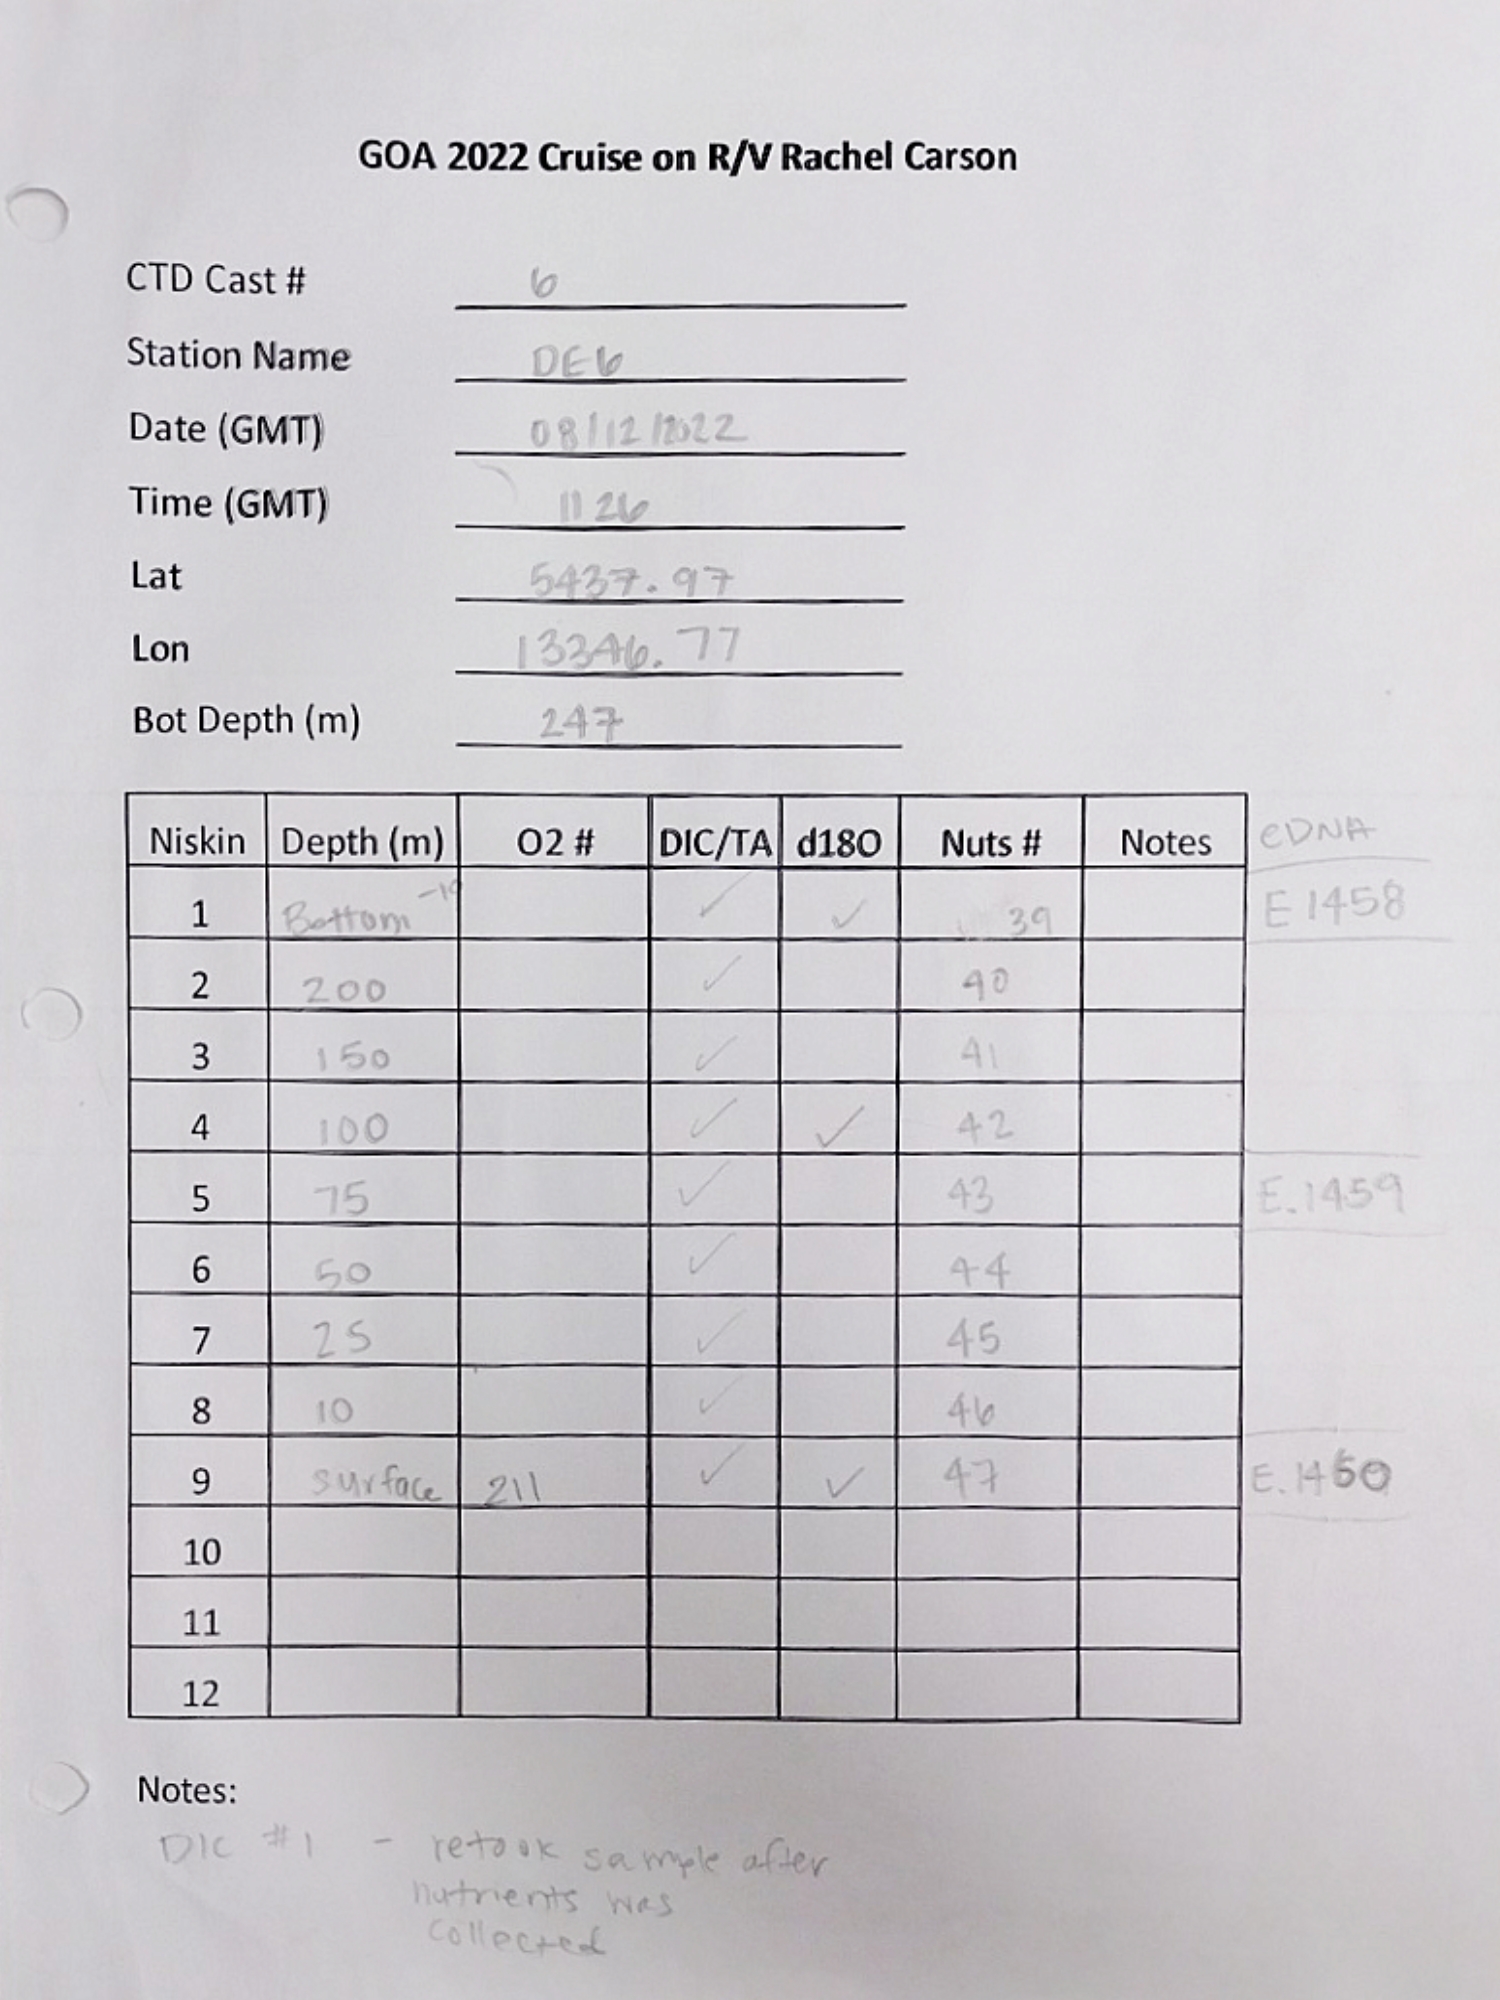 GOA 2022 Cruise on R/V Rachel Carson
CTD Cast # 6
Station Name DE6
Date (GMT) 08/12/2022
Time (GMT) 1126
Lat 5437.97
Lon 13346.77
Bot Depth (m) 247
Niskin Depth (m) O2 # DIC/TA d18O Nuts # Notes eDNA
1 Bottom -10 ✓ ✓ 39 E 1458
2 200 ✓ 40
3 150 ✓ 41
4 100 ✓ ✓ 42
5 75 ✓ 43 E.1459
6 50 ✓ 44
7 25 ✓ 45
8 10 ✓ 46
9 surface 211 ✓ ✓ 47 E.1460
10
11
12
Notes:
DIC #1 - retook sample after
nutrients was
collected